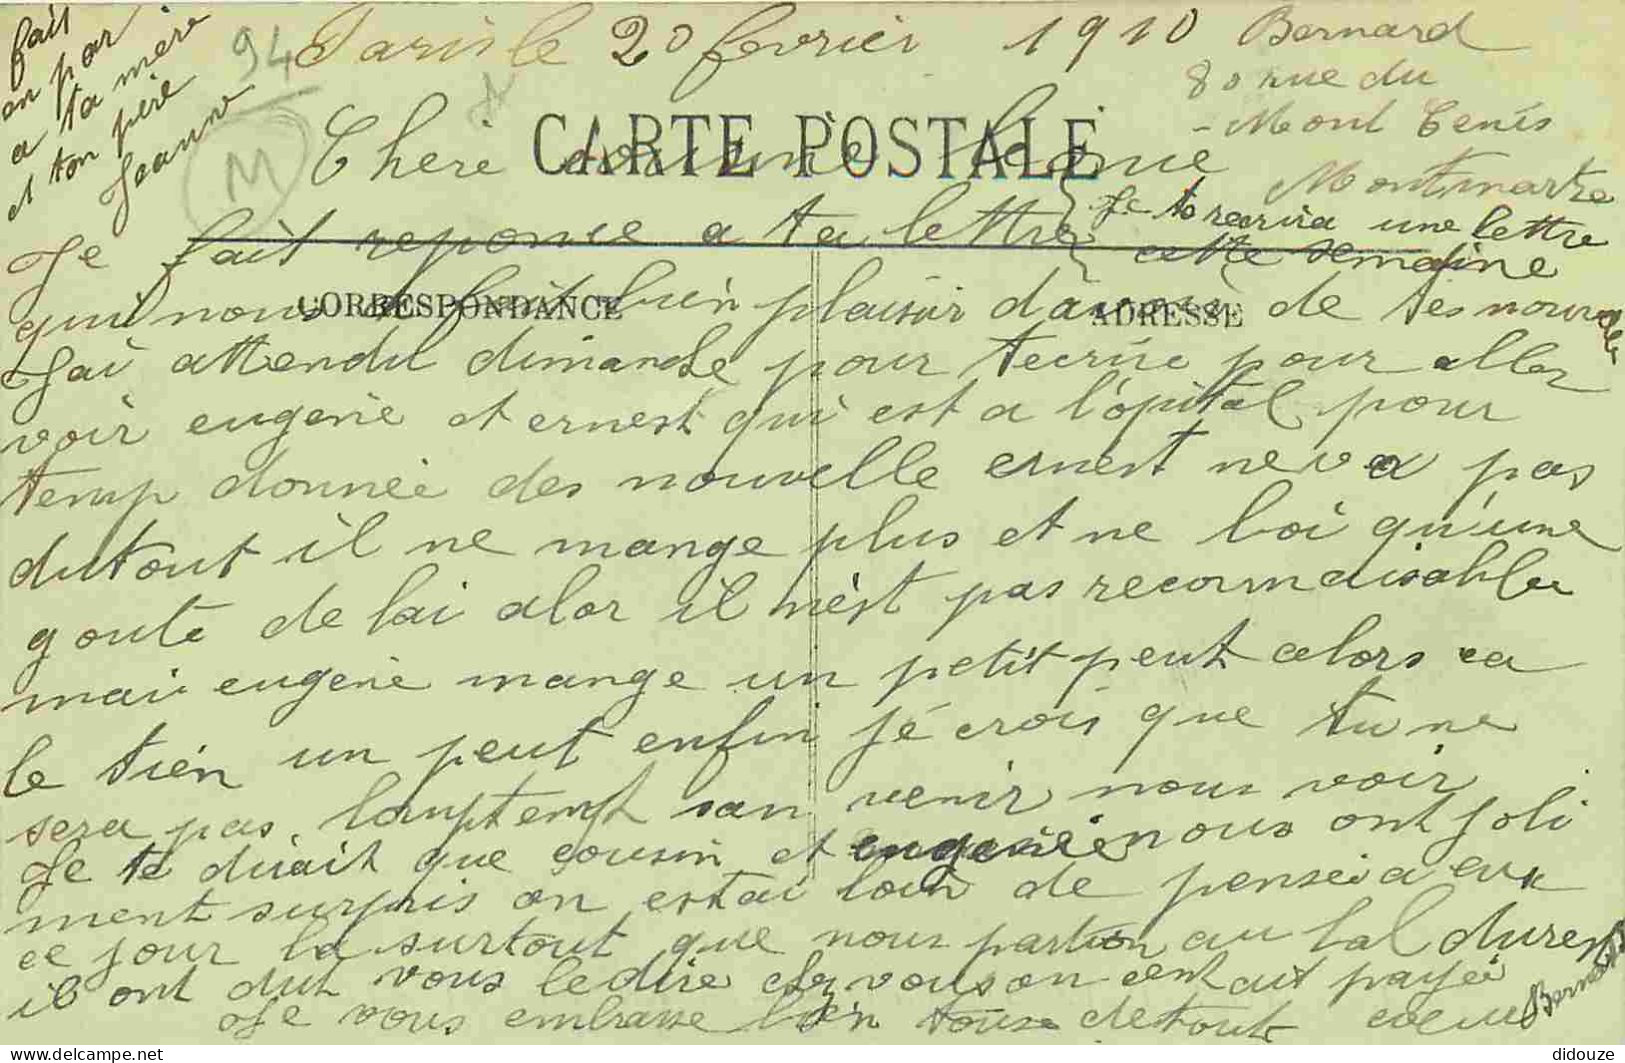 fait
en par
a ta mère
et ton père
Jeanne
94
M
Paris le 20 fevrier 1910 Bernard
80 rue du
Mont Cenis
Montmartre
CARTE POSTALE
Cheri
Je fait reponce a ta lettre
Je te recrira une lettre
cette semaine
CORRESPONDANCE
ADRESSE
qui nous a fait bien plaisir davoir de tes nouvelle
Jai attendu dimanche pour tecrire pour aller
voir eugenie et ernest qui est a l'opital pour
temp donneè des nouvelle ernest ne va pas
dutout il ne mange plus et ne boi qu'une
goute de lai alor il nèst pas reconnaisable
mai eugenie mange un petit peut alors ca
le tien un peut enfin jé crois que tu ne
sera pas lomptempt san venir nous voir
Je te dirait que cousin et eugenie nous ont joli
ment surpris on estai loin de penseia eux
ce jour la surtout que nous partion au bal du reste
il ont dut vous le dire chez vous on cent ait payée
Je vous embrasse bien tous de tout coeur Bernard
didouze